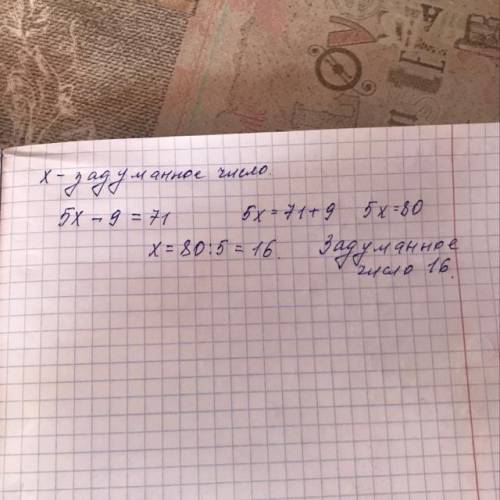 LOV
х - задуманное число.
5х - 9 = 71 5х = 71 + 9 5х = 80
х = 80 : 5 = 16. Задуманное
число 16.